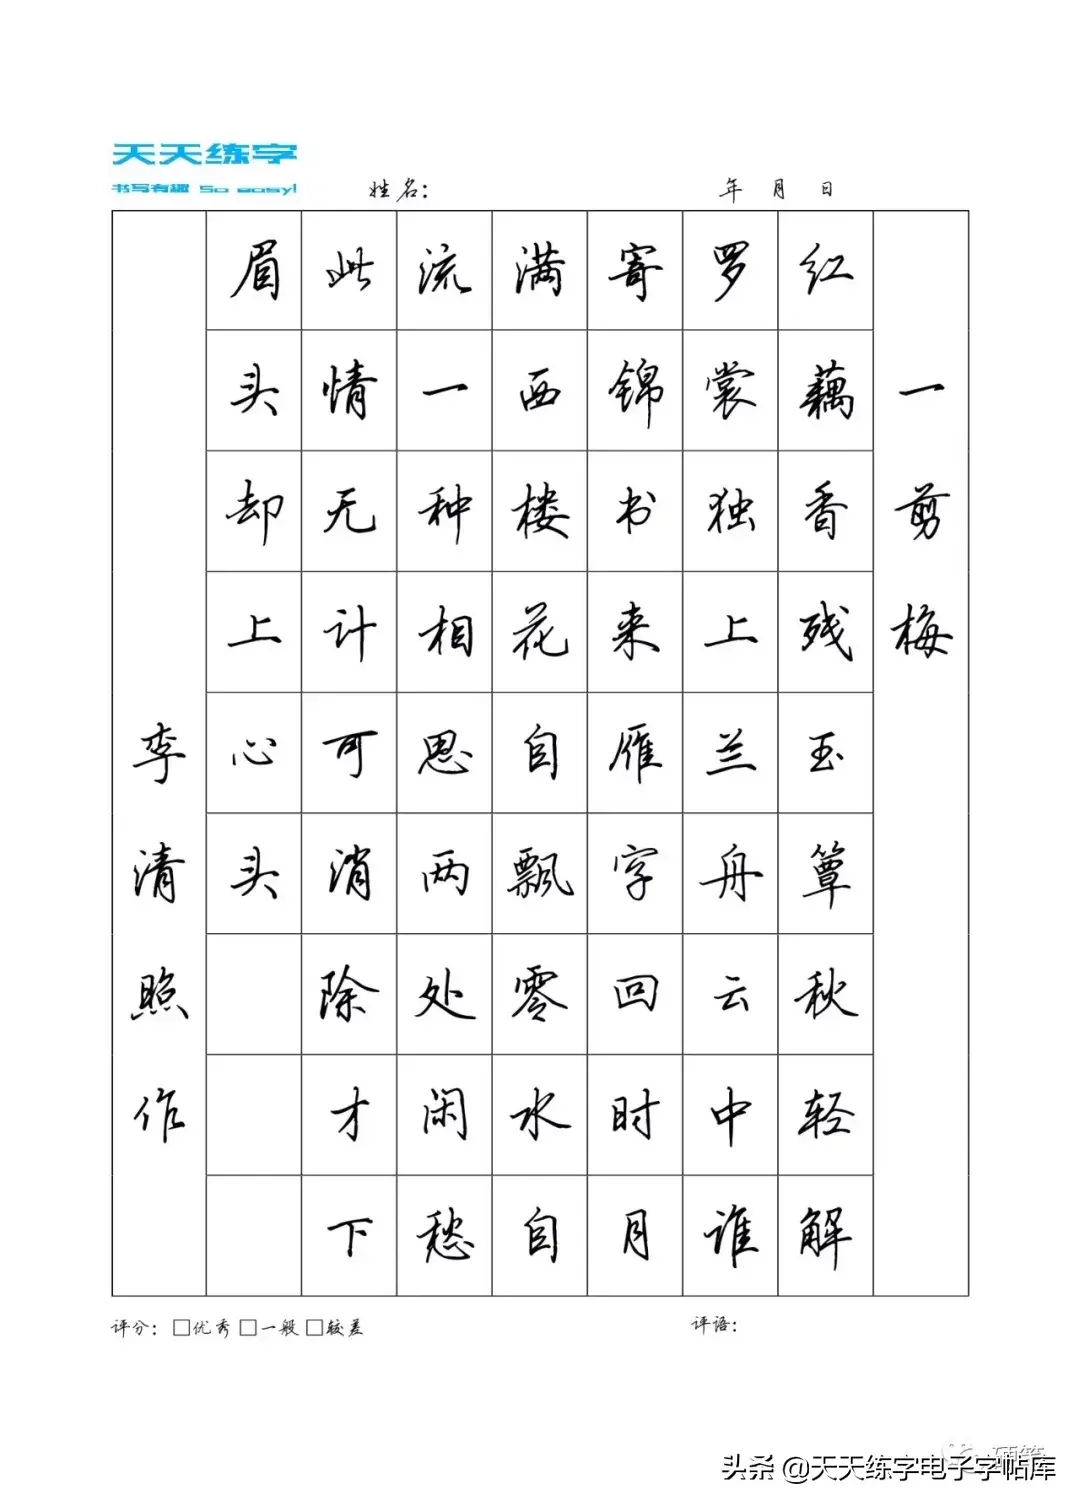 天天练字
书写有趣 So easy!
姓名：
年 月 日
一剪梅
红藕香残玉簟秋轻解
罗裳独上兰舟云中谁
寄锦书来雁字回时月
满西楼花自飘零水自
流一种相思两处闲愁
此情无计可消除才下
眉头却上心头
李清照作
评分：□优秀 □一般 □较差
评语：
硬笔
头条 @天天练字电子字帖库